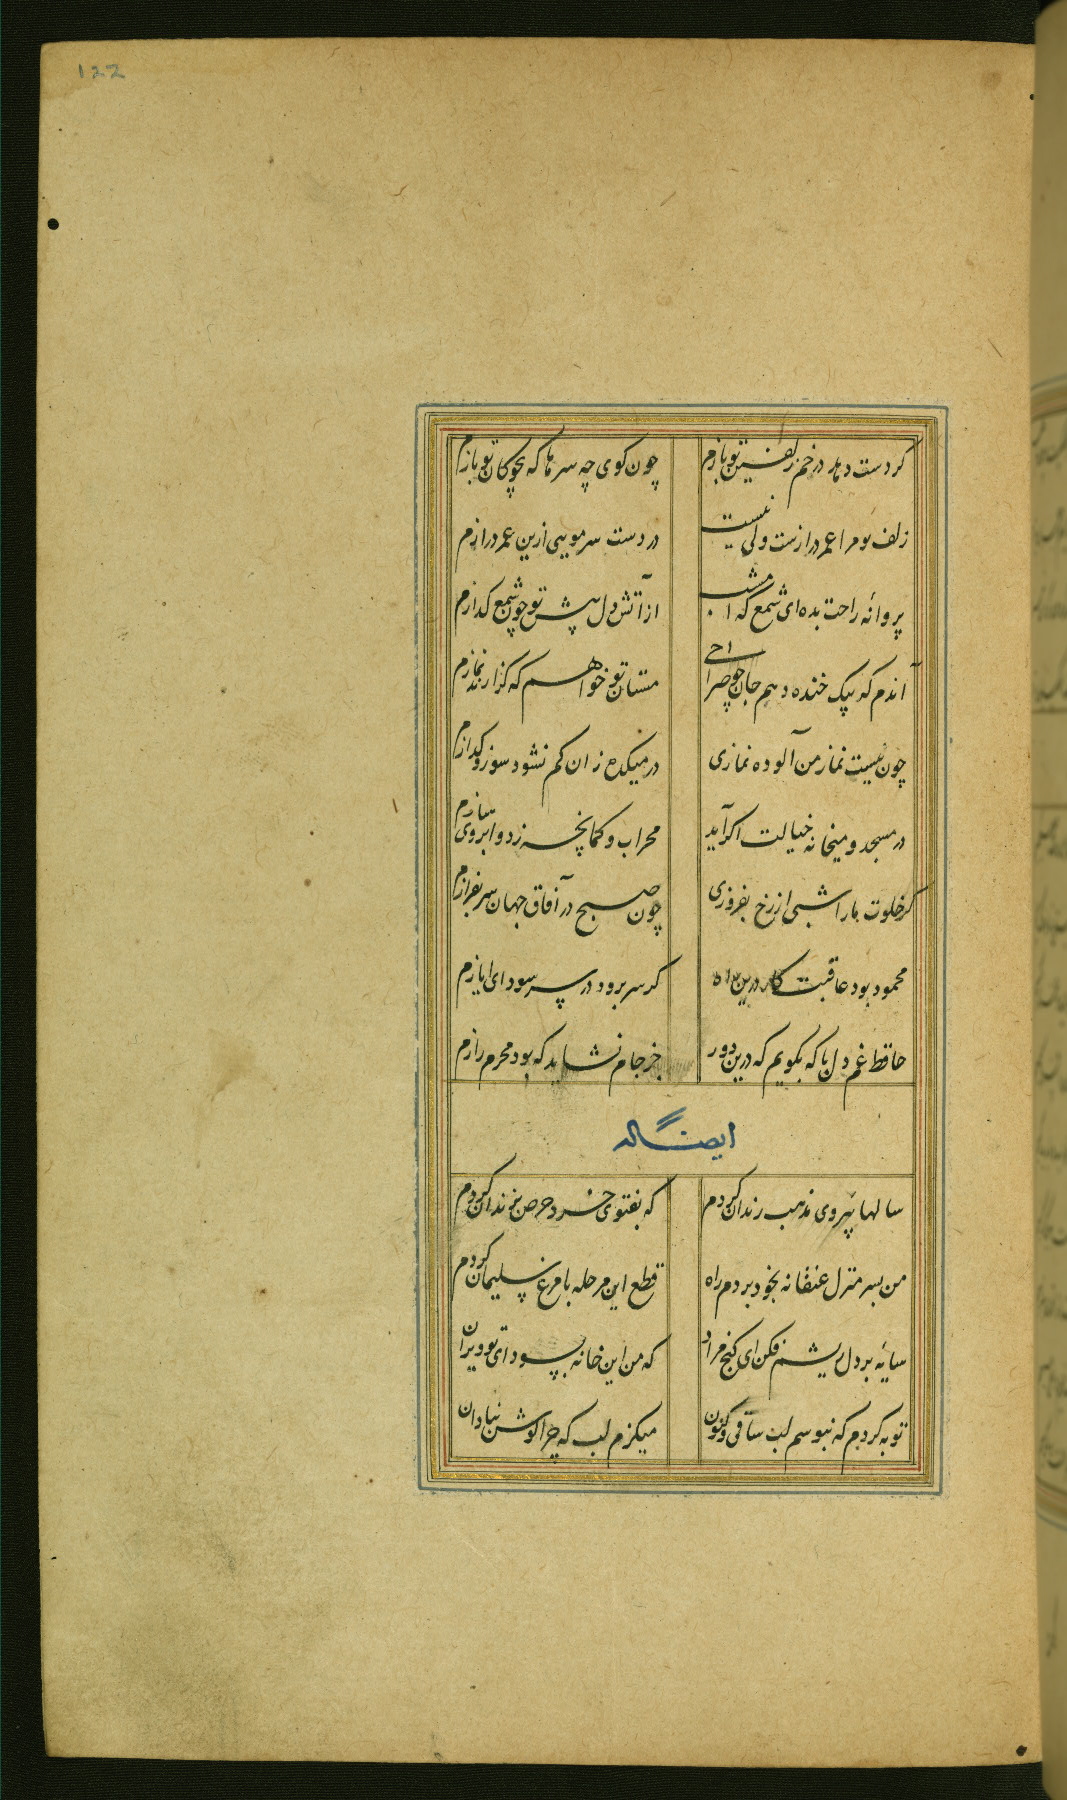 122
گر دست دهد در خم زلفین تو بازم
چون گوی چه سرها که بچوگان تو بازم
زلف تو مرا عمر درازست ولی نیست
در دست سر مویی ازین عمر درازم
پروانه راحت بده ای شمع که امشب
از آتش دل پیش تو چون شمع گدازم
آندم که بیک خنده دهم جان چو صراحی
مستان تو خواهم که گزارند نمازم
چون نیست نماز من آلوده نمازی
در میکده زان کم نشود سوز و گدازم
در مسجد و میخانه خیالت اگر آید
محراب و کمانچه ز دو ابروی تو سازم
گر خلوت ما را شبی از رخ بفروزی
چون صبح در آفاق جهان سر بفرازم
محمود بود عاقبت کار درین راه
گر سر برود در سر سودای ایازم
حافظ غم دل با که بگویم که درین دور
جز جام نشاید که بود محرم رازم
ایضاً له
سالها پیروی مذهب رندان کردم
که بفتوی خرد حرص بزندان کردم
من بسر منزل عنقا نه بخود بردم راه
قطع این مرحله با مرغ سلیمان کردم
سایه بر دل ریشم فکن ای گنج مراد
که من این خانه بسودای تو ویران
توبه کردم که نبوسم لب ساقی و کنون
میگزم لب که چرا گوش بنادان